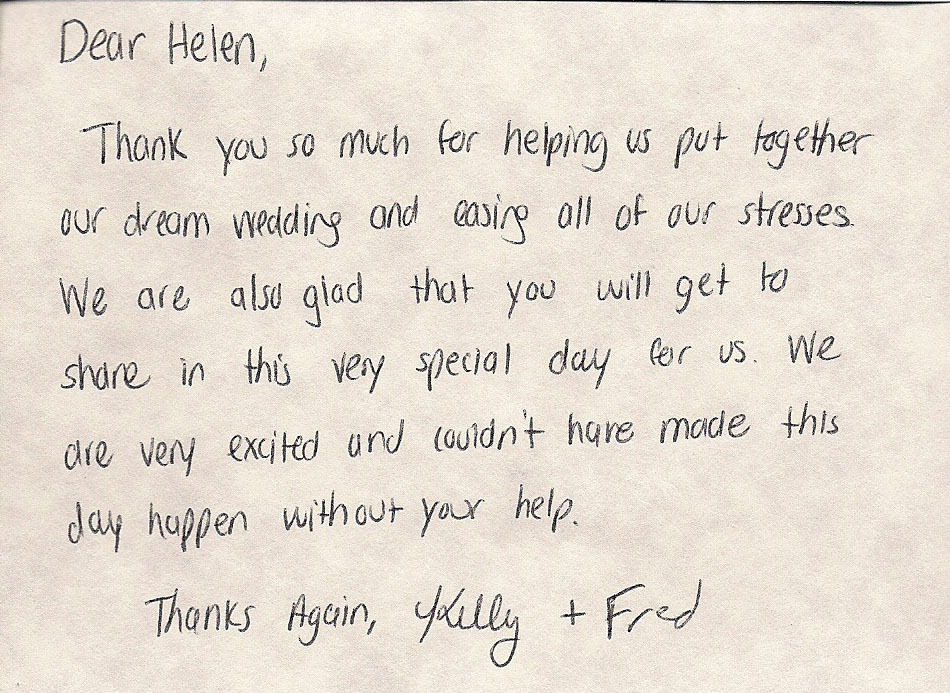 Dear Helen,
Thank you so much for helping us put together
our dream wedding and easing all of our stresses.
We are also glad that you will get to
share in this very special day for us. We
are very excited and couldn't have made this
day happen without your help.
Thanks Again, Kelly + Fred